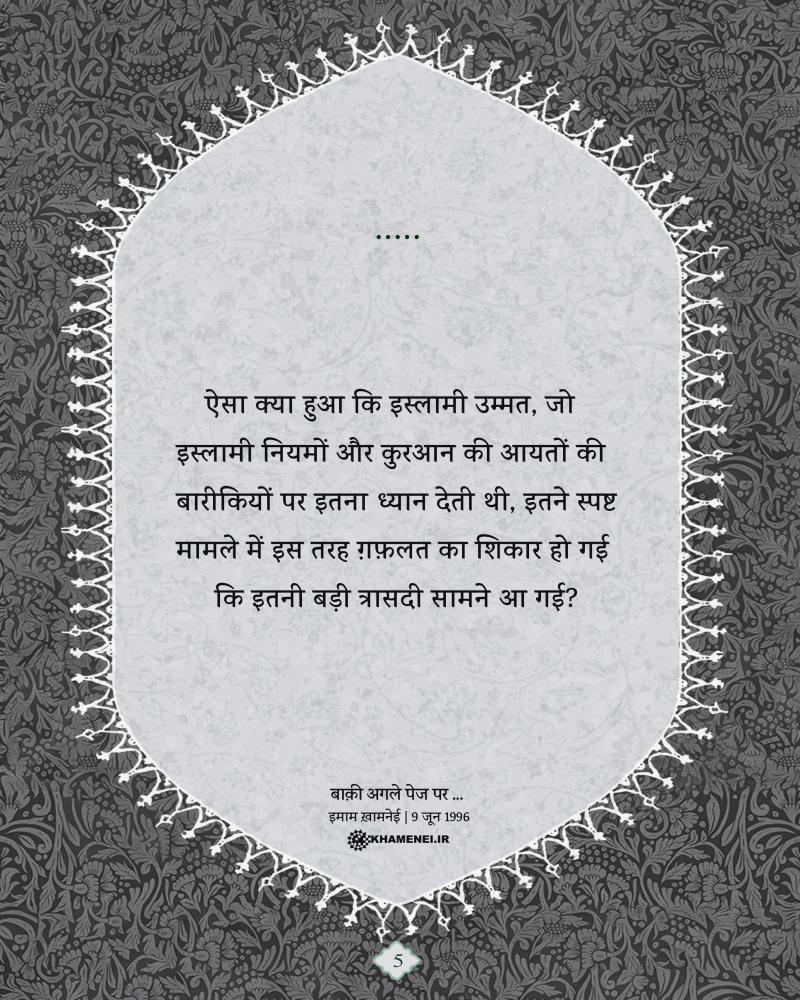 .....
ऐसा क्या हुआ कि इस्लामी उम्मत, जो
इस्लामी नियमों और कुरआन की आयतों की
बारीकियों पर इतना ध्यान देती थी, इतने स्पष्ट
मामले में इस तरह ग़फ़लत का शिकार हो गई
कि इतनी बड़ी त्रासदी सामने आ गई?
बाक़ी अगले पेज पर ...
इमाम ख़ामनेई | 9 जून 1996
KHAMENEI.IR
5